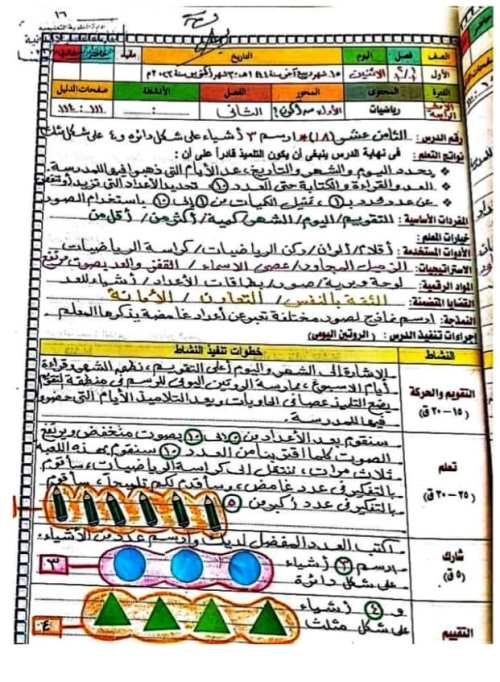 ١٦
الصف فصل اليوم التاريخ
الأول الاثنين
الفترة المحتوى المحور الفصل الأنشطة صفحات الدليل
رياضيات الثانى
رقم الدرس : الثامن عشر (١٨) * ارسم ٣ أشياء على شكل دائرة و ٤ على شكل مثلث
نواتج التعلم : فى نهاية الدرس ينبغى أن يكون التلميذ قادراً على أن :
يحدد اليوم والشهر والتاريخ، عد الأيام التى ذهبوا فيها للمدرسة.
العد والقراءة والكتابة حتى العدد ١٠ تحديد الأعداد التى تزيد أو تنقص
عن عدد محدد بـ ١ ، تمثيل الكميات من ١ إلى ١٠ باستخدام الصور
المفردات الأساسية : التقويم / اليوم / الشهر / كمية / أكثر من / أقل من
خيارات المعلم :
الأدوات المستخدمة : أقلام / ألوان / ركن الرياضيات / كراسة الرياضيات
الاستراتيجيات : الزميل المجاور / عصى الأسماء / القفز والعد بصوت مرتفع
المواد الرقمية : لوحة وبرية / صور / بطاقات الأعداد / أشياء للعد
القضايا المتضمنة : الثقة بالنفس / التعاون / الأمانة
النمذجة : ارسم نماذج لصور مختلفة تعبر عن أعداد غامضة يذكرها المعلم
اجراءات تنفيذ الدرس : (الروتين اليومى)
النشاط خطوات تنفيذ النشاط
التقويم والحركة
(١٥-٢٠ ق)
الإشارة إلى الشهر واليوم أعلى التقويم، نظهر الشهر وقراءة
أيام الأسبوع، يمارسه الروتين اليومى للرسم فى منطقة التقويم
يضع التلميذ عصا فى الحاويات ويعد التلاميذ الأيام التى حضروا
فيها للمدرسة.
تعلم
(٢٥-٢٠ ق)
سنقوم بعد الأعداد من إلى ١٠ بصوت منخفض ويرتفع
الصوت كلما اقتربنا من العدد ١٠ سنقوم بهذه اللعبة
ثلاث مرات، ننتقل إلى كراسة الرياضيات، سأقوم
بالتفكير فى عدد غامض، وسأقدم لكم تلميحاً، سأقوم
بالتفكير فى عدد أكبر من ٥
شارك
(٥ ق)
اكتب العدد المفضل لديك وارسم عدد من الأشياء.
ارسم ٣ أشياء
على شكل دائرة
٣
التقييم
و ٤ أشياء
على شكل مثلث
٤